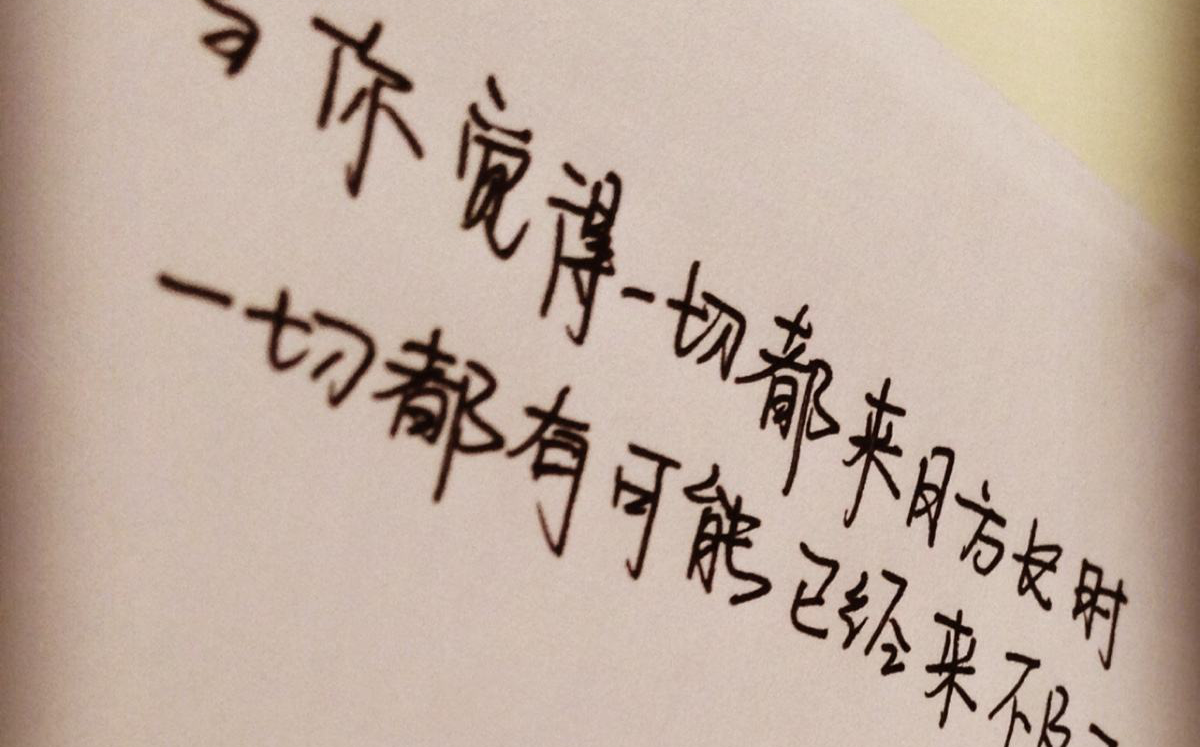 当你觉得一切都来日方长时
一切都有可能已经来不及